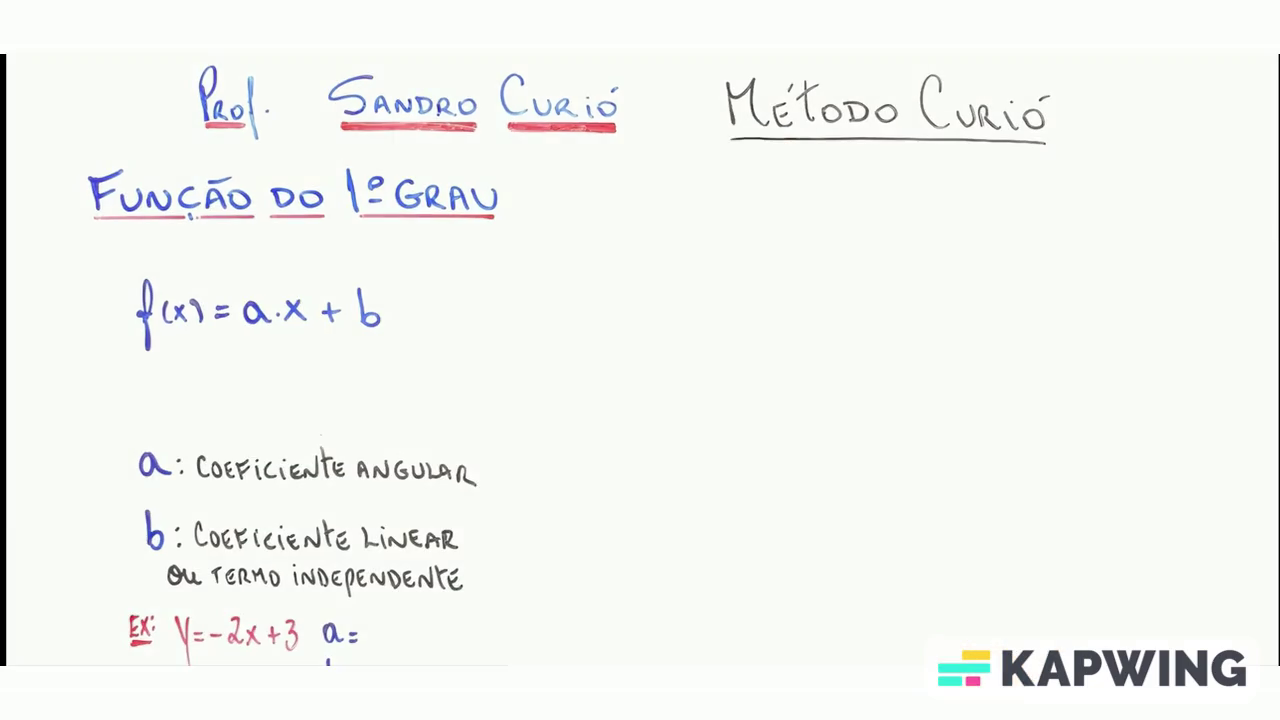 Prof. SANDRO CURIÓ MÉTODO CURIÓ
FUNÇÃO DO 1º GRAU
f(x) = a.x + b
a: COEFICIENTE ANGULAR
b: COEFICIENTE LINEAR
OU TERMO INDEPENDENTE
EX: y=-2x+3 a=
KAPWING